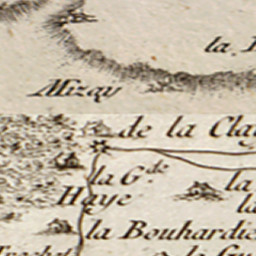 la
Mizay
de la Clay
la G.de
Haye
la
la
la Bouhardie